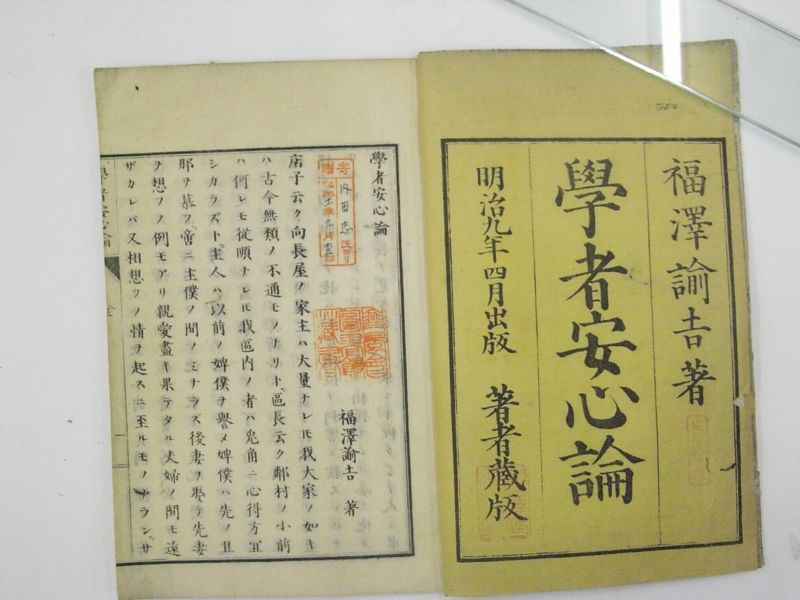 福澤諭吉著
學者安心論
明治九年四月出版 著者藏版
學者安心論
福澤諭吉 著
店子云ク向長屋ノ家主ハ大量ナレ𪜈我大家ノ如キ
ハ古今無類ノ不通モノナリト區長云ク鄰村ノ小前
ハ何レモ從順ナレ𪜈我區内ノ者ハ兎角ニ心得方宜
シカラズト主人ハ以前ノ婢僕ヲ譽メ婢僕ハ先ノ旦
那ヲ慕フ啻ニ主僕ノ間ノミナラズ後妻ヲ娶テ先妻
ヲ想フノ例モアリ親愛盡キ果テタル夫婦ノ間モ遠
ザカレバ又相想フノ情ヲ起スニ至ルモノナランサ
學者安心論